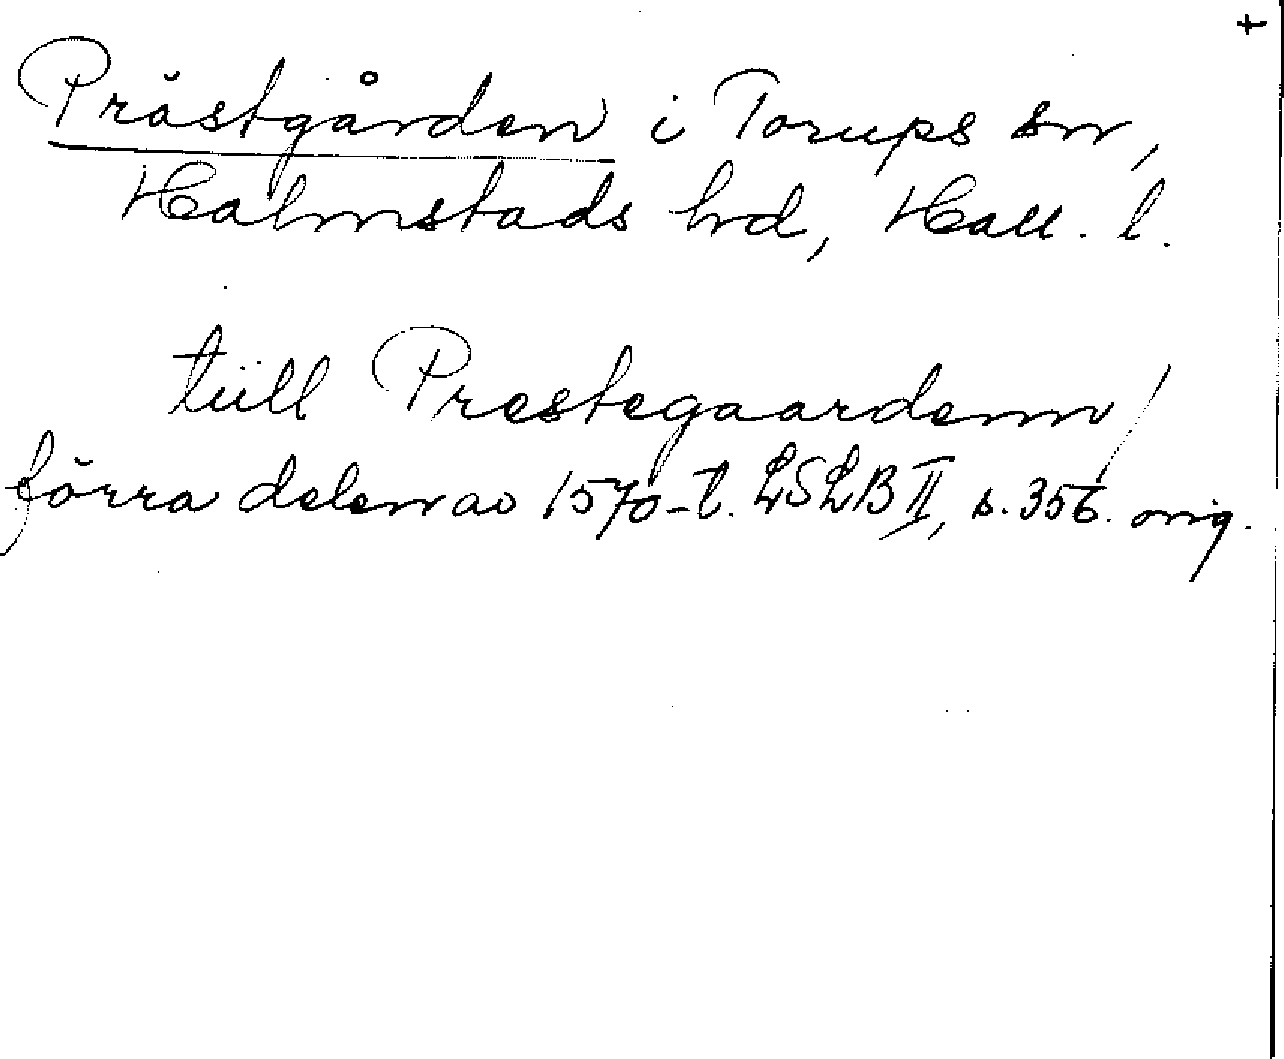 +
Prästgården i Torups sn,
Halmstads hd, Hall. l.
tiill Prestegaardenn /
förra delen av 1570-t. LSLB II, s. 356. orig.